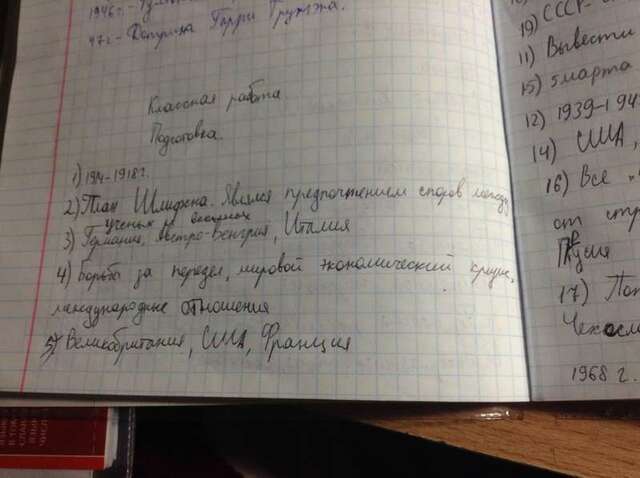 1946г.-
47г.- Доктрина Гарри Трумэна.
Классная работа.
Подготовка.
1) 1914-1918г.
2) План Шлифена. Являлся предпочтением споров между
ученых и военных
3) Германия, Австро-Венгрия, Италия
4) Борьба за передел, мировой экономический кризис,
международные отношения
5) Великобритания, США, Франция
19) СССР-
11) Вывести
15) 5 марта
12) 1939-194
14) США,
16) Все
от стр
17) Поп
Чехосл
1968 г.